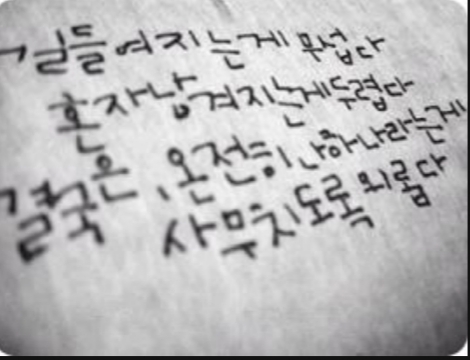 길들여지는게 무섭다
혼자남겨지는게두렵다
결국은, 온전히 나하나라는게
사무치도록 외롭다